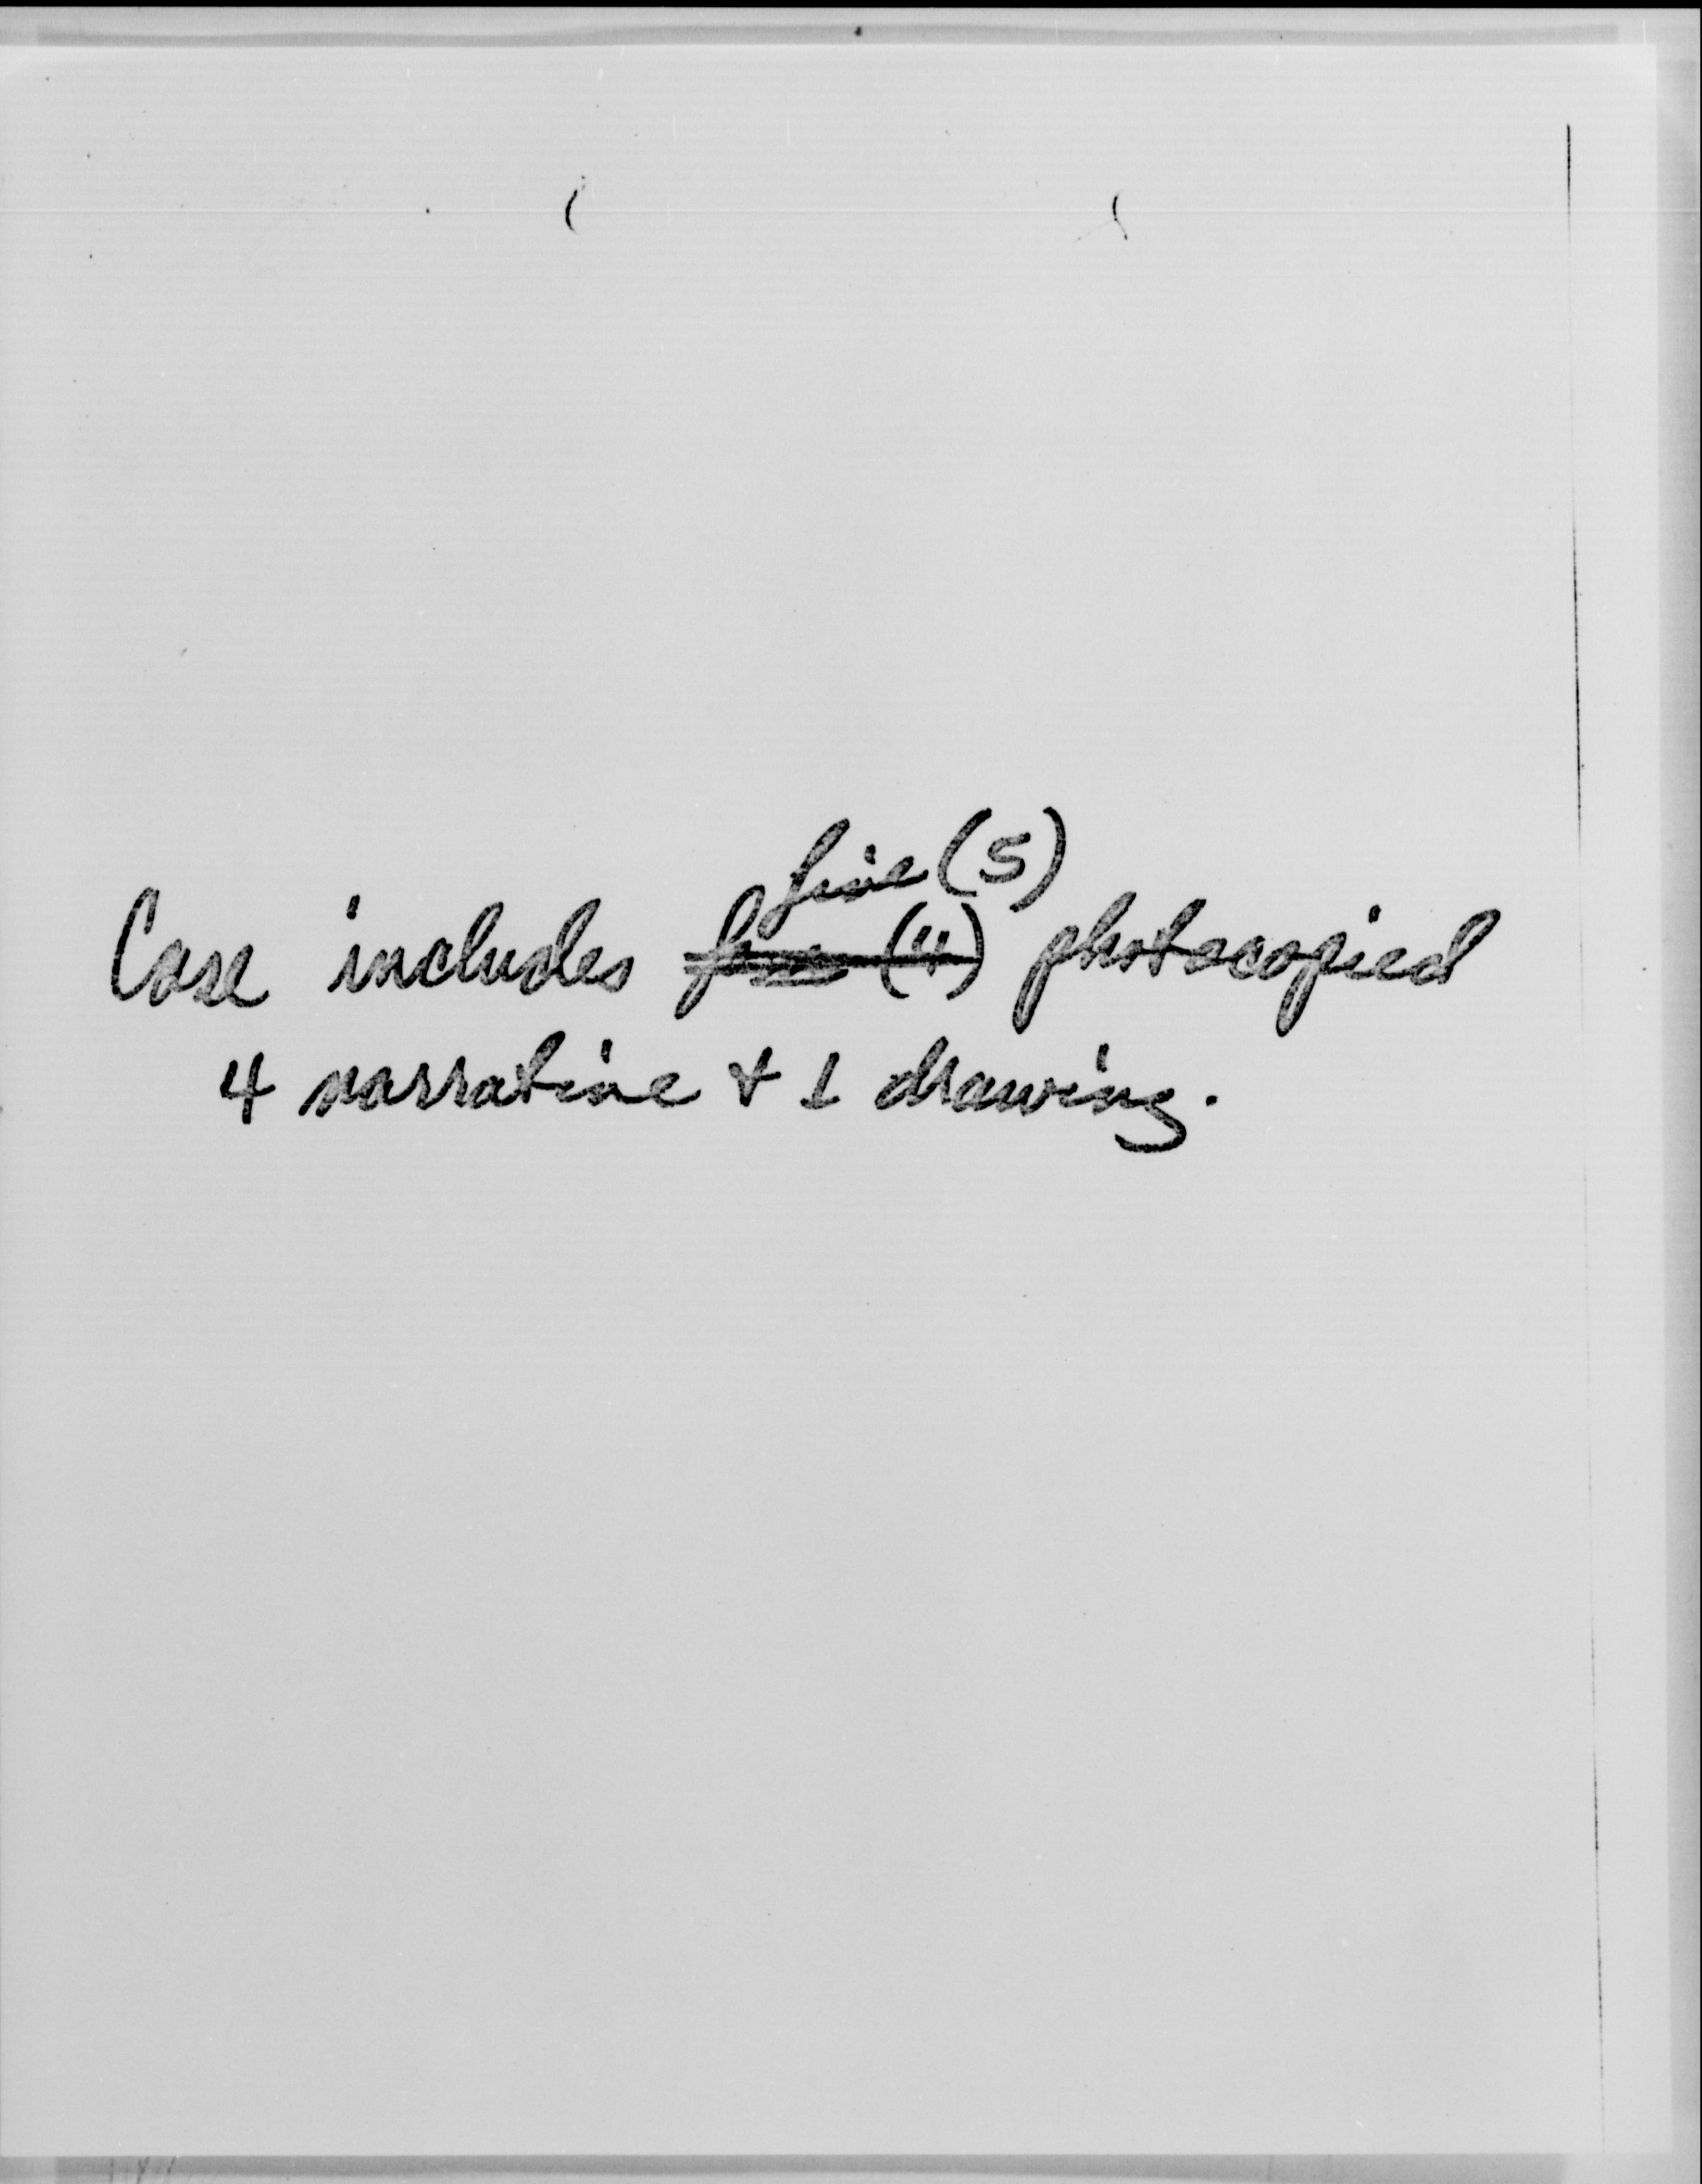 five (5)
Case includes four (4) photocopied
4 narrative & 1 drawing.